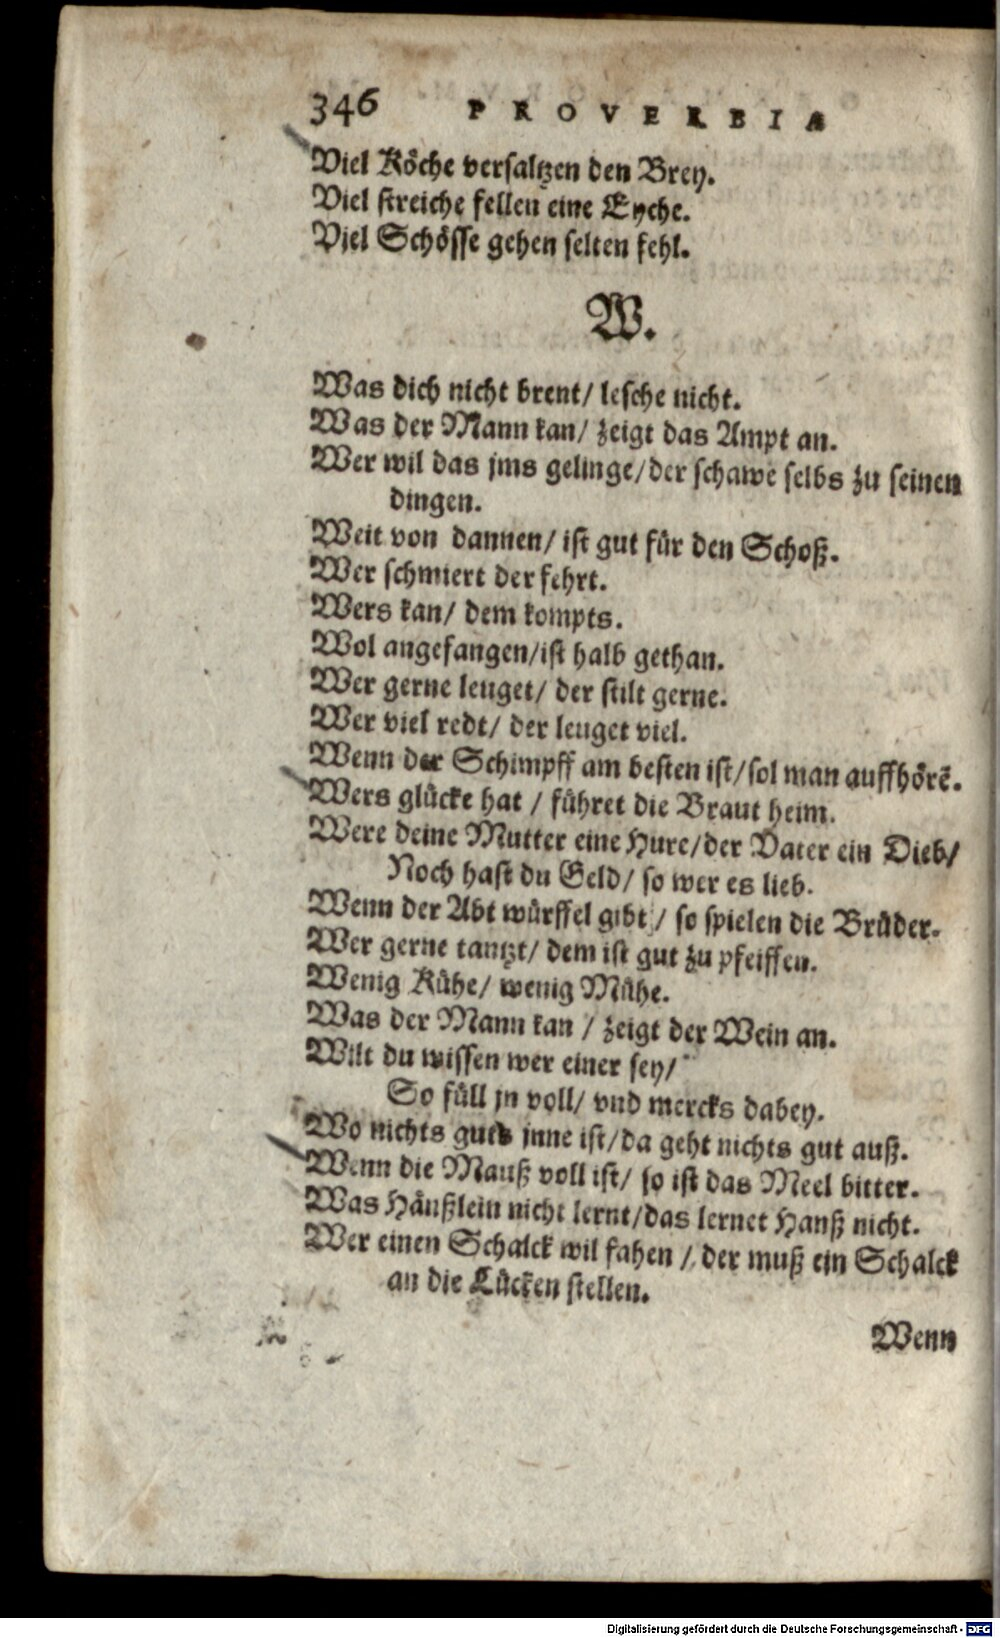 346 PROVERBIA
Viel Köche versaltzen den Brey.
Viel streiche fellen eine Eyche.
Viel Schösse gehen selten fehl.
W.
Was dich nicht brent/ lesche nicht.
Was der Mann kan/ zeigt das Ampt an.
Wer wil das jms gelinge/der schawe selbs zu seinen
dingen.
Weit von dannen/ ist gut für den Schoß.
Wer schmiert der fehrt.
Wers kan/ dem kompts.
Wol angefangen/ist halb gethan.
Wer gerne leuget/ der stilt gerne.
Wer viel redt/ der leuget viel.
Wenn der Schimpff am besten ist/sol man auffhörẽ.
Wers glücke hat / führet die Braut heim.
Were deine Mutter eine Hure/der Vater ein Dieb/
Noch hast du Geld/ so wer es lieb.
Wenn der Abt würffel gibt / so spielen die Brüder.
Wer gerne tantzt/ dem ist gut zu pfeiffen.
Wenig Kühe/ wenig Mühe.
Was der Mann kan / zeigt der Wein an.
Wilt du wissen wer einer sey/
So füll jn voll/ vnd mercks dabey.
Wo nichts guts jnne ist/da geht nichts gut auß.
Wenn die Mauß voll ist/ so ist das Meel bitter.
Was Hänßlein nicht lernt/das lernet Hanß nicht.
Wer einen Schalck wil fahen / der muß ein Schalck
an die Lücken stellen.
Wenn
Digitalisierung gefördert durch die Deutsche Forschungsgemeinschaft - DFG